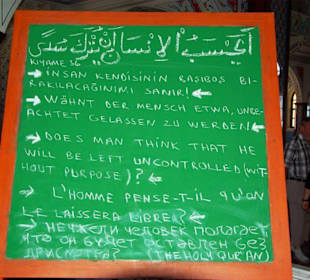 أَيَحْسَبُ الْإِنْسَانُ أَنْ يُتْرَكَ سُدًى
KIYAME 36
→ İNSAN KENDİSİNİN BAŞIBOŞ BI-
RAKILACAĞINIMI SANIR! ←
→ WÄHNT DER MENSCH ETWA, UNBE-
ACHTET GELASSEN ZU WERDEN ←
→ DOES MAN THINK THAT HE
WILL BE LEFT UNCONTROLLED (WIT-
HOUT PURPOSE)? ←
→ L'HOMME PENSE-T-IL QU'ON
LE LAISSERA LIBRE? ←
→ НЕУЖЕЛИ ЧЕЛОВЕК ПОЛАГАЕТ,
ЧТО ОН БУДЕТ ОСТАВЛЕН БЕЗ
ПРИСМОТРА? (THE HOLY QUR'AN)